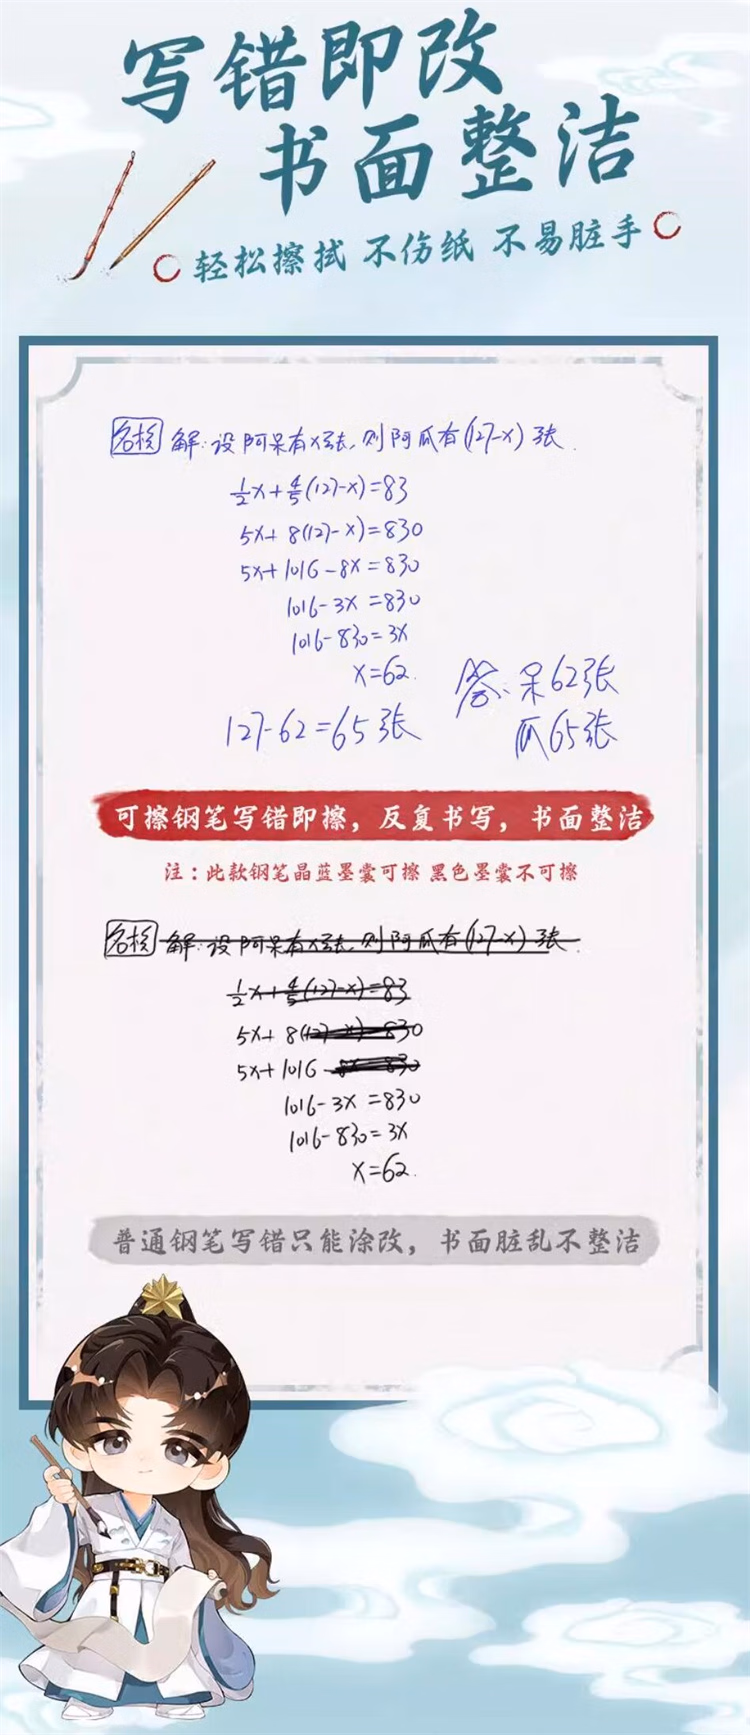 写错即改
书面整洁
轻松擦拭 不伤纸 不易脏手
解:设阿呆有x张,则阿瓜有(127-x)张.
1/2x+4/5(127-x)=83
5x+8(127-x)=830
5x+1016-8x=830
1016-3x=830
1016-830=3x
x=62.
127-62=65张
答:呆62张
瓜65张
可擦钢笔写错即擦,反复书写,书面整洁
注:此款钢笔晶蓝墨囊可擦 黑色墨囊不可擦
解:设阿呆有x张,则阿瓜有(127-x)张.
1/2x+4/5(127-x)=83
5x+8(127-x)=830
5x+1016-8x=830
1016-3x=830
1016-830=3x
x=62.
普通钢笔写错只能涂改,书面脏乱不整洁